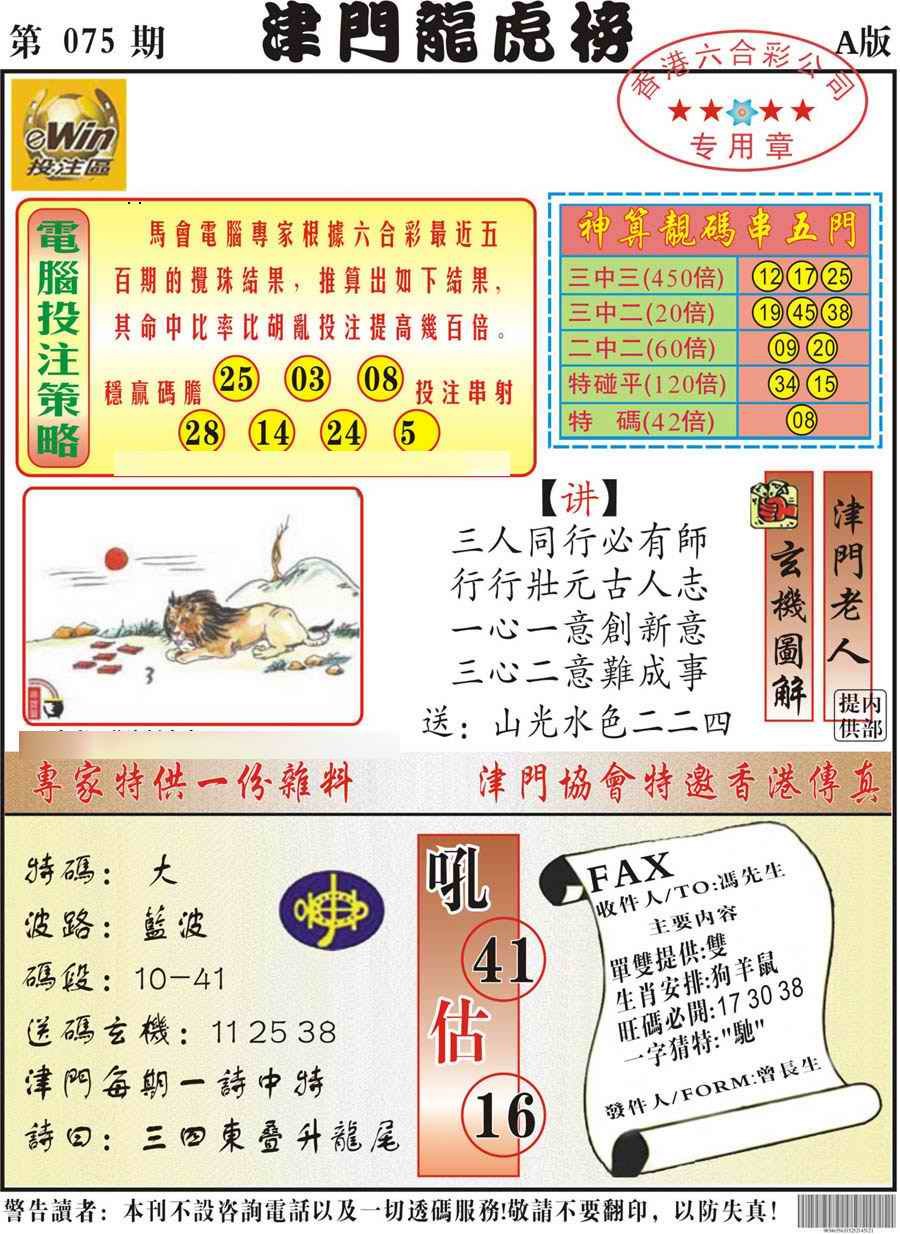 第 075 期
津門龍虎榜
A版
香港六合彩公司
专用章
eWin
投注區
電腦投注策略
馬會電腦專家根據六合彩最近五
百期的攪珠結果，推算出如下結果，
其命中比率比胡亂投注提高幾百倍。
穩贏碼膽 25 03 08 投注串射
28 14 24 5
神算靚碼串五門
三中三(450倍) 12 17 25
三中二(20倍) 19 45 38
二中二(60倍) 09 20
特碰平(120倍) 34 15
特 碼(42倍) 08
【讲】
三人同行必有師
行行壯元古人志
一心一意創新意
三心二意難成事
送：山光水色二二四
玄機圖解
津門老人
内部提供
3
專家特供一份雜料
津門協會特邀香港傳真
特碼：大
波路：藍波
碼段：10-41
送碼玄機：11 25 38
津門每期一詩中特
詩曰：三四東叠升龍尾
吼
41
估
16
FAX
收件人/TO:馮先生
主要内容
單雙提供:雙
生肖安排:狗羊鼠
旺碼必開:17 30 38
一字猜特:"馳"
發件人/FORM:曾長生
警告讀者：本刊不設咨詢電話以及一切透碼服務!敬請不要翻印，以防失真！